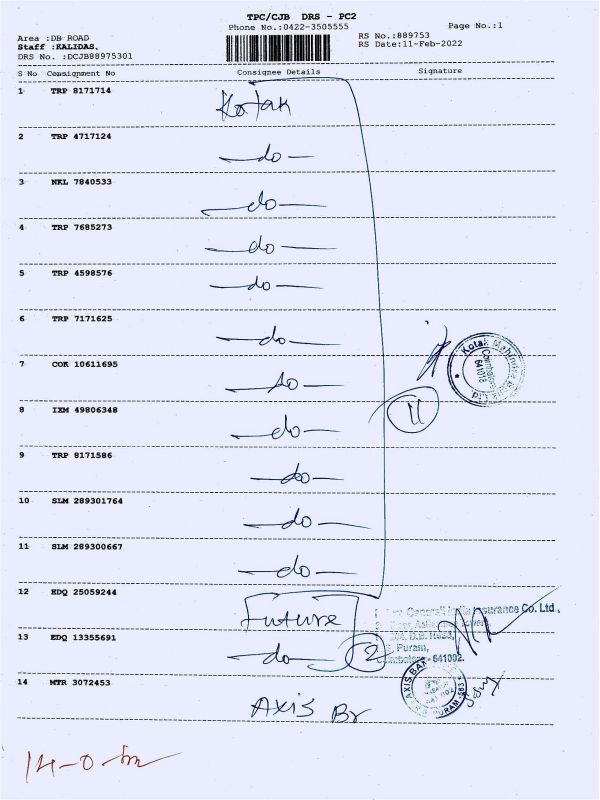 TPC/CJB DRS - PC2
Phone No.:0422-3505555
Page No.:1
Area :DB ROAD
Staff :KALIDAS.
DRS No. :DCJB88975301
RS No.:889753
RS Date:11-Feb-2022
S No Consignment No Consignee Details Signature
1 TRP 8171714 Kotak
2 TRP 4717124 -do-
3 NKL 7840533 -do-
4 TRP 7685273 -do-
5 TRP 4598576 -do-
6 TRP 7171625 -do-
7 COK 10611695 -do-
8 IXM 49806348 -do-
9 TRP 8171586 -do-
10 SLM 289301764 -do-
11 SLM 289300667 -do-
11
Kotak Mahindra Bank Ltd
Coimbatore
641018
12 EDQ 25059244 Future
Generali India Insurance Co. Ltd.,
D.B. Road,
Puram,
Coimbatore - 641002.
13 EDQ 13355691 -do- 2
14 MTR 3072453 Axis Br
AXIS BANK
PURAM
14-0-